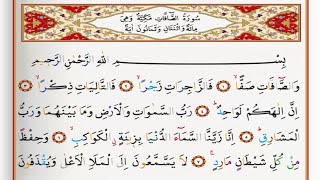 سُورَةُ الصَّافَّاتِ مَكِّيَّةٌ وَهِيَ
مِائَةٌ وَاثْنَتَانِ وَثَمَانُونَ اٰيَةً
بِسْمِ اللهِ الرَّحْمٰنِ الرَّحِيمِ
وَالصَّٓافَّاتِ صَفًّاۙ ﴿١﴾ فَالزَّاجِرَاتِ زَجْرًاۙ ﴿٢﴾ فَالتَّالِيَاتِ ذِكْرًاۙ ﴿٣﴾
اِنَّ اِلٰهَكُمْ لَوَاحِدٌۜ ﴿٤﴾ رَبُّ السَّمٰوَاتِ وَالْاَرْضِ وَمَا بَيْنَهُمَا وَرَبُّ
الْمَشَارِقِۜ ﴿٥﴾ اِنَّا زَيَّنَّا السَّمَٓاءَ الدُّنْيَا بِزِينَةٍۨ الْكَوَاكِبِۙ ﴿٦﴾ وَحِفْظًا
مِنْ كُلِّ شَيْطَانٍ مَارِدٍۚ ﴿٧﴾ لَا يَسَّمَّعُونَ اِلَى الْمَلَاِ الْاَعْلٰى وَيُقْذَفُونَ